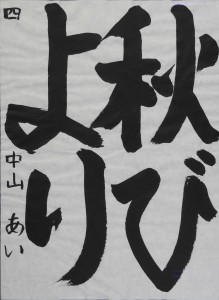 秋び
より
四 中山 あい